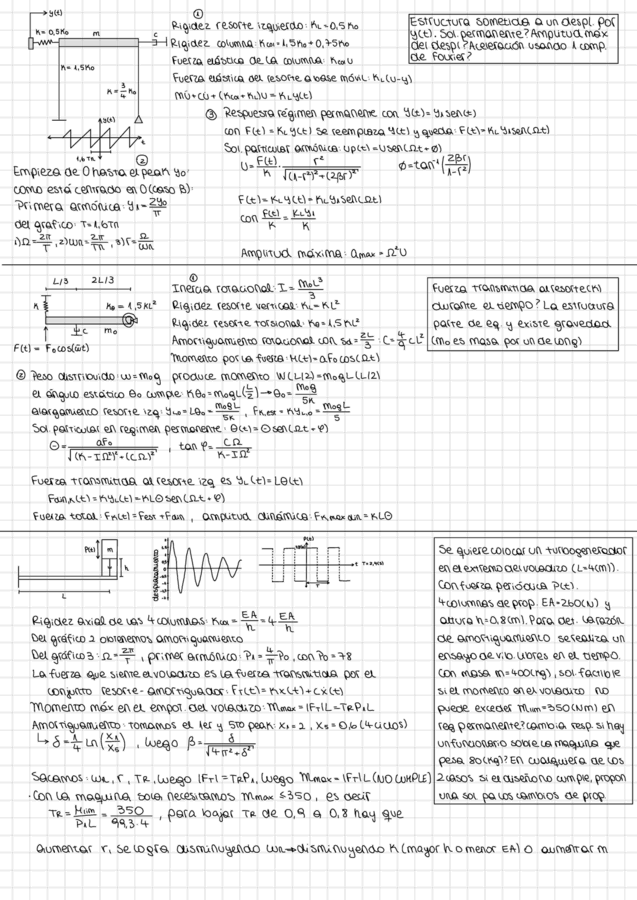 y(t)
K=0,5K0
m
c
K=1,5K0
K=3/4 K0
y(t)
t
1,6Tn
①
Rigidez resorte izquierdo: KL=0,5K0
Rigidez columna: Kcol=1,5K0+0,75K0
Fuerza elástica de la columna: Kcol U
Fuerza elástica del resorte a base móvil: KL(U-y)
mü+cu̇+(Kcol+KL)U=KLy(t)
Estructura sometida a un despl. por
y(t). Sol. permanente? Amplitud máx
del despl? Aceleración usando 1 comp.
de Fourier?
②
Empieza de 0 hasta el peak y0
como está centrado en 0 (caso B):
Primera armónica: y1=2y0/π
del gráfico: T=1,6Tn
1) Ω=2π/T, 2) ωn=2π/Tn, 3) r=Ω/ωn
③ Respuesta régimen permanente con y(t)=y1sen(t)
con F(t)=KLy(t) se reemplaza y(t) y queda: F(t)=KLy1sen(Ωt)
Sol. particular armónica: Up(t)=Usen(Ωt+Ø)
U=F(t)/K · r²/√((1-r²)²+(2βr)²) Ø=tan⁻¹(2βr/1-r²)
F(t)=KLy(t)=KLy1sen(Ωt)
con F(t)/K=KLy1/K
Amplitud máxima: amax=Ω²U
L/3 2L/3
K
Kθ=1,5KL²
c m0
F(t)=F0cos(ω̄t)
①
Inercia rotacional: I=m0L³/3
Rigidez resorte vertical: KL=KL²
Rigidez resorte torsional: Kθ=1,5KL²
Amortiguamiento rotacional con sd=2L/3: C=4/9 cL²
Momento por la fuerza: M(t)=aF0cos(Ωt)
Fuerza transmitida al resorte (K)
durante el tiempo? La estructura
parte de eq. y existe gravedad
(m0 es masa por un de long)
② Peso distribuido: w=m0g produce momento W(L/2)=m0gL(L/2)
el ángulo estático θ0 cumple: Kθ0=m0gL(L/2)→θ0=m0g/5K
alargamiento resorte izq: yL,0=Lθ0=m0gL/5K, FK,est=KyL,0=m0gL/5
Sol. particular en régimen permanente: θ(t)=Θsen(Ωt+φ)
Θ=aF0/√((K-IΩ²)²+(CΩ)²), tan φ=CΩ/K-IΩ²
Fuerza transmitida al resorte izq es yL(t)=Lθ(t)
Fdin,k(t)=KyL(t)=KLΘsen(Ωt+φ)
Fuerza total: FK(t)=Fest+Fdin, amplitud dinámica: FK,max din=KLΘ
P(t) m
h
L
desplazamiento
P(t)
t T=2,4(s)
Se quiere colocar un turbogenerador
en el extremo del voladizo (L=4(m)).
Con fuerza periódica P(t).
4 columnas de prop. EA=260(N) y
altura h=0,8(m). Para det. la razón
de amortiguamiento se realiza un
ensayo de vib. libres en el tiempo.
Con masa m=400(kg), sol. factible
si el momento en el voladizo no
puede exceder Mlim=350(Nm) en
reg permanente? Cambia resp. si hay
un funcionario sobre la maquina que
pesa 80(kg)? En cualquiera de los
2 casos si el diseño no cumple, propon
una sol pa los cambios de prop.
Rigidez axial de las 4 columnas: Kcol=EA/h=4 EA/h
Del gráfico 2 obtenemos amortiguamiento
Del gráfico 3: Ω=2π/T, primer armónico: P1=4/π P0, con P0=78
La fuerza que siente el voladizo es la fuerza transmitida por el
conjunto resorte-amortiguador: FT(t)=Kx(t)+cẋ(t)
Momento máx en el empot. del voladizo: Mmax=|FT|L=TRP1L
Amortiguamiento: tomamos el 1er y 5to peak: X1=2, X5=0,6 (4 ciclos)
↳ δ=1/4 Ln(X1/X5), luego β=δ/√4π²+δ²
Sacamos: ωn, r, TR, luego |FT|=TRP1, luego Mmax=|FT|L (NO CUMPLE)
· Con la maquina sola necesitamos Mmax≤350, es decir
TR=Mlim/P1L=350/99,3·4, para bajar TR de 0,9 a 0,8 hay que
aumentar r, se logra disminuyendo ωn→disminuyendo K (mayor h o menor EA) o aumentar m